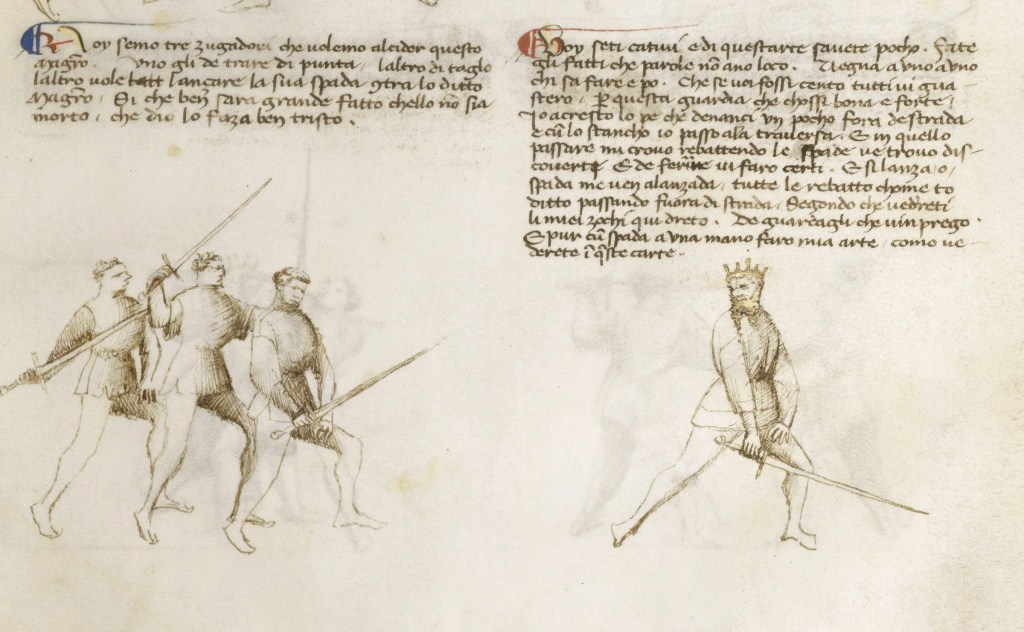 Noy semo tre zugadori che volemo alcider questo
magro. Uno gli de trare di punta, laltro di taglo
laltro vole tatt lançare la sua spada 9tra lo ditto
Magro. Si che ben sara grande fatto chello no sia
morto, che dio lo faza ben tristo.
Voy seti cativi e di questarte savete pocho. Fate
gli fatti che parole no ano loco. Vegna a uno a uno
chi sa fare e po. Che se voi fossi cento tutti vi gua
stero, per questa guardia che chossi bona e forte,
Io acresco lo pe che denançi un pocho fora de strada
e cu lo stancho io passo ala traversa. E in quello
passare mi crovo rebattendo le spade ve trovo dis-
coverti E de ferire vi faro certi. E si lanza, o,
spada me ven alanzada, tutte le rebatto chome to
ditto passando fuora di strada, Segondo che vedreti
li miei zochi qui dreto. De guardagli che vin prego.
E pur cu spada a una mano faro mia arte, come ve
derete i q̃ste carte.